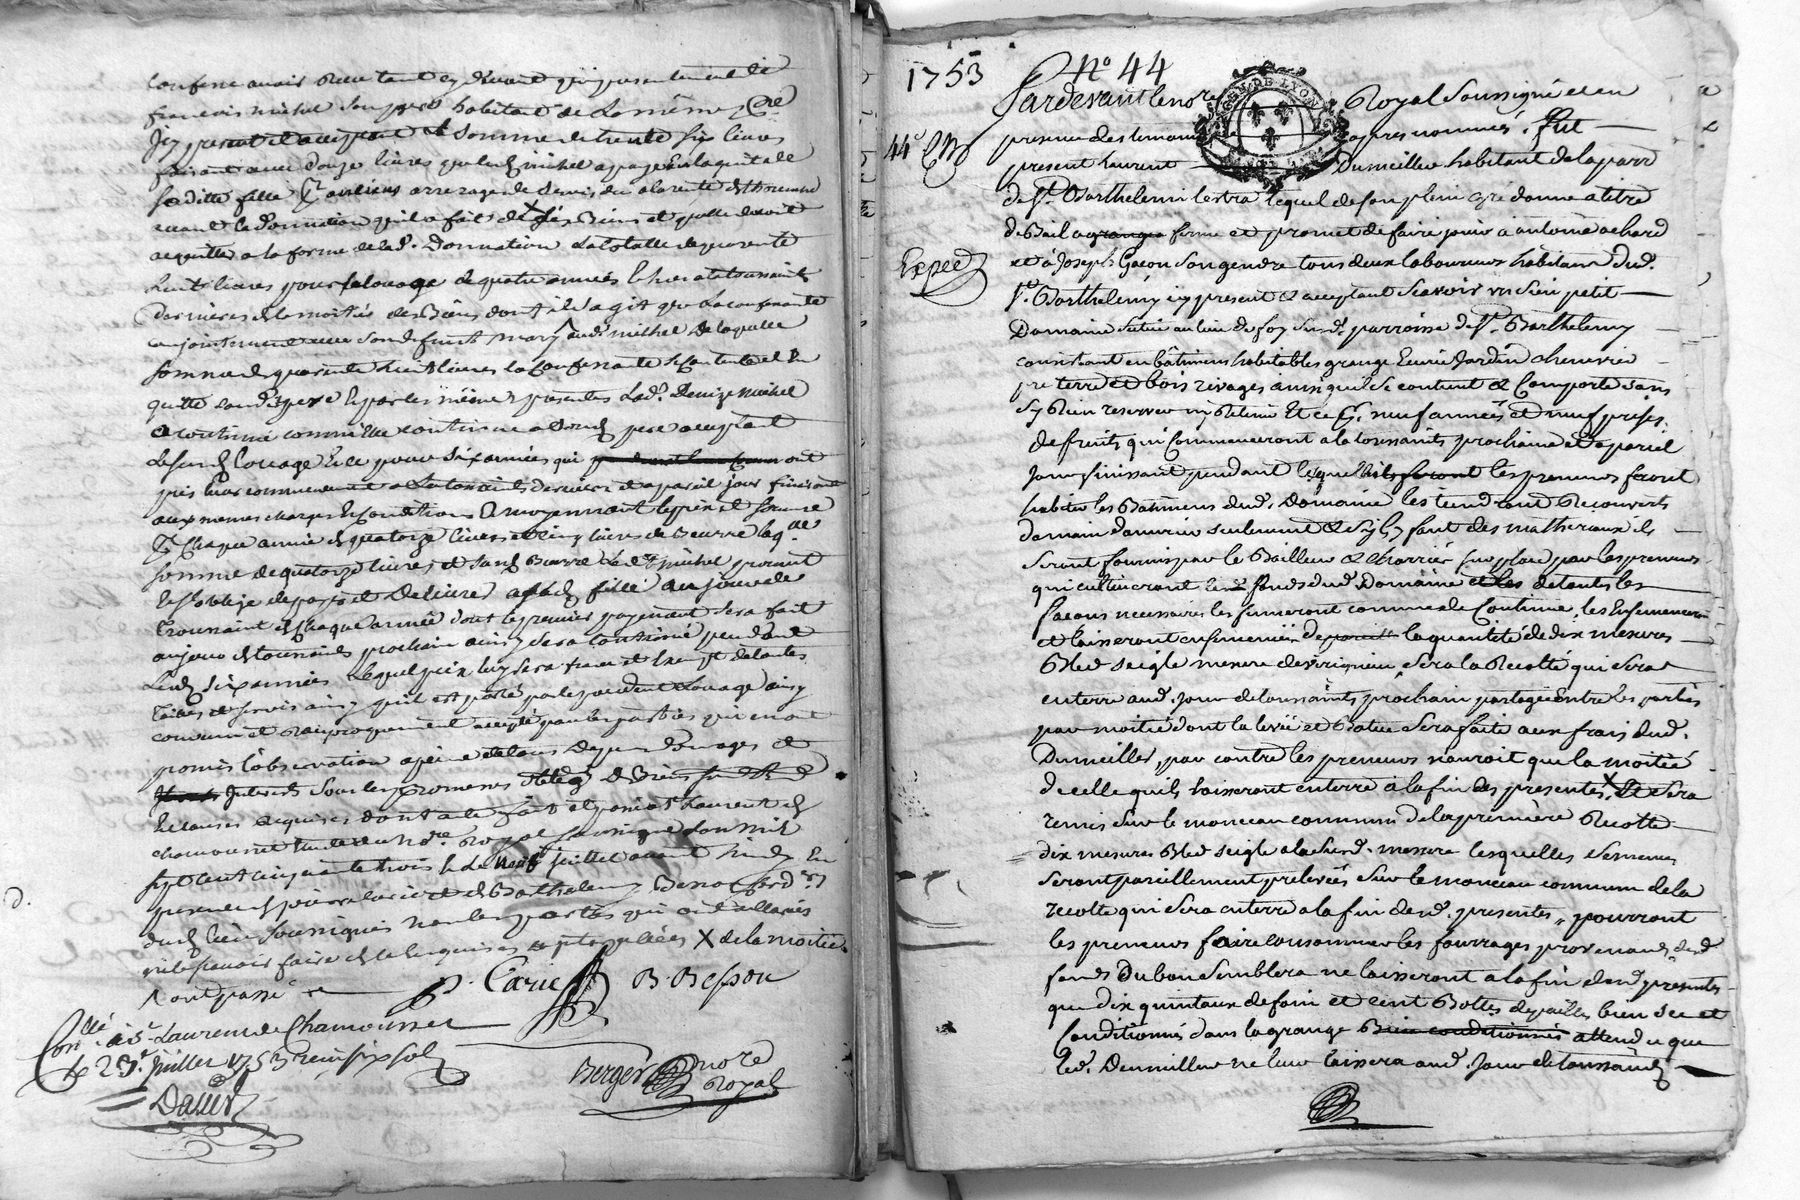 confesse avoir receu tant cy devant que presentement de
francois michel son pere habitant de la même p^re
icy present et acceptant la somme de trente six livres
faisant avec douze livres que led. michel a payé en l'acquit de
sa ditte fille
avant la donnation qu'il a fait de ses Biens et qu'elle devoit
acquitter a la forme de lad. Donnation la totalle de quarente
huit livres pour le louage de quatre années echues a la toussaint
dernieres de la moitié des Biens dont il s'agit que la confessante
conjointement avec son defunt mary aud. michel de laquelle
somme de quarente huit livres la confessante se contente et en
quitte sond. pere et par les mêmes presentes lad. Denize michel
a continué comme elle continue a sond. pere acceptant
le susd. louage et ce pour six années qui ont
pris leur commencement a la toussaints derniere et a pareil jour finissant
aux memes charges et conditions et moyennant le prix et somme
de chaque année de quatorze livres et cinq livres de Beurre laq.^lle
somme de quatorze livres et susd. Beurre led. michel promet
et s'oblige de payer et delivrer a lad. fille au jour de
Toussaint de chaque année dont le premier payement sera fait
au jour de toussaints prochain ainsy sera continué pendant
lesd. six années lequel prix luy sera franc et exempt de toutes
tailles et servis ainsy qu'il est porté par le precedent louage ainsy
convenu et reciproquement accepté par les parties qui en ont
promis l'observation a peine de tous depens dommages et
interets sous les promesses obligⁿ de Biens
et clauses requises dont acte fait et passé a S^t Laurent de
chamousset etude du no^re Royal soussigné l'an mil
sept cent cinquante trois et le neuf juillet avant midy En
presence de pierre carie et de Barthelemy Besson
dud. lieu soussignés non les parties qui ont declarés
ne le scavoir faire de ce enquises et interpellées X de la moitié
P. Carie B. Besson
Con^llé a S^t Laurent de Chamousset
le 23^e Juillet 1753 Six sols
Berger no^re
Royal
Dassier
1753
N° 44
44^e
Expeé
Pardevant le no^re Royal Soussigné et en
presence des temoins cy apres nommés, fut
present Laurent Dumeiller habitant de la parr^e
de S^t Barthelemi lestra lequel de son plein gré donne a titre
de Bail a ferme et promet de faire jouir a antoine achard
et à Joseph Gacon son gendre tous deux laboureurs habitans dud.
S^t. Barthelemy icy present & acceptant scavoir un sien petit
Domaine situé au lieu de foy susd. parroisse de S^t. Barthelemy
consistant en bâtimens habitables grange Ecurie Jardin chenevier
pré terre et bois rivages ainsi qu'il se contient & Comporte sans
y rien reserver ny Retenir Et ce p^r. neuf années et neuf prises
de fruits, qui Commenceront a la toussaints prochaine et a pareil
jour finissant pendant lesquelles les preneurs feront
habiter les Batimens dud. Domaine les tiendront Recouverts
de main d'ouvrier seulement & s'il y faut des matheriaux ils
seront fournis par le Bailleur & charriés sur place par les preneurs
qui cultiveront les fonds dud. Domaine de toutes les
facons necessaires les fumeront comme de Coutume, les Ensemenceront
et laisseront ensemencés de la quantité de dix mesures
Bled seigle mesure de virigneu sera la Recolte qui sera
enterre aud. jour de toussaints prochain partagée Entre les parties
par moitié dont la levée et Batue sera faite aux frais dud.
Dumeiller, par contre les preneurs n'auront que la moitié
de celle qu'ils laisseront enterre a la fin des presentes, X Et sera
remis sur le monceau commun de la premiere Recolte
dix mesures Bled seigle a la susd. mesure lesquelles semences
seront pareillement prelevées sur le monceau commun de la
recolte qui sera enterre a la fin desd. presentes, pourront
les preneurs faire consommer les fourrages provenants desd.
fonds Du bon semblera ne laisseront a la fin desd. presentes
que dix quintaux de foin et cent Bottes de pailles bien sec et
Conditionnés dans la grange attendu que
led. Dumeiller ne leur laissera aud. Jour de toussaints